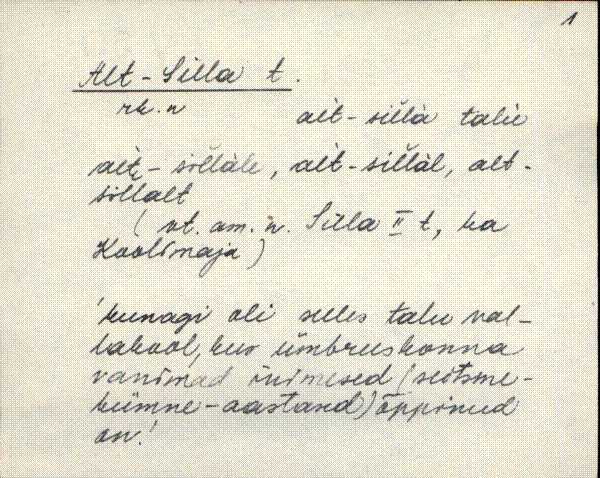 1
Alt-Silla t.
rk. n
alt-sillà talu
alt-sillàle, alt-sillàl, alt-
sillalt
(vt. am. n. Silla II t, ka
Koolimaja)
'kunagi oli selles talu val-
lakool, kus ümbruskonna
vanimad inimesed (seitsme-
kümne-aastand) õppinud
on.'